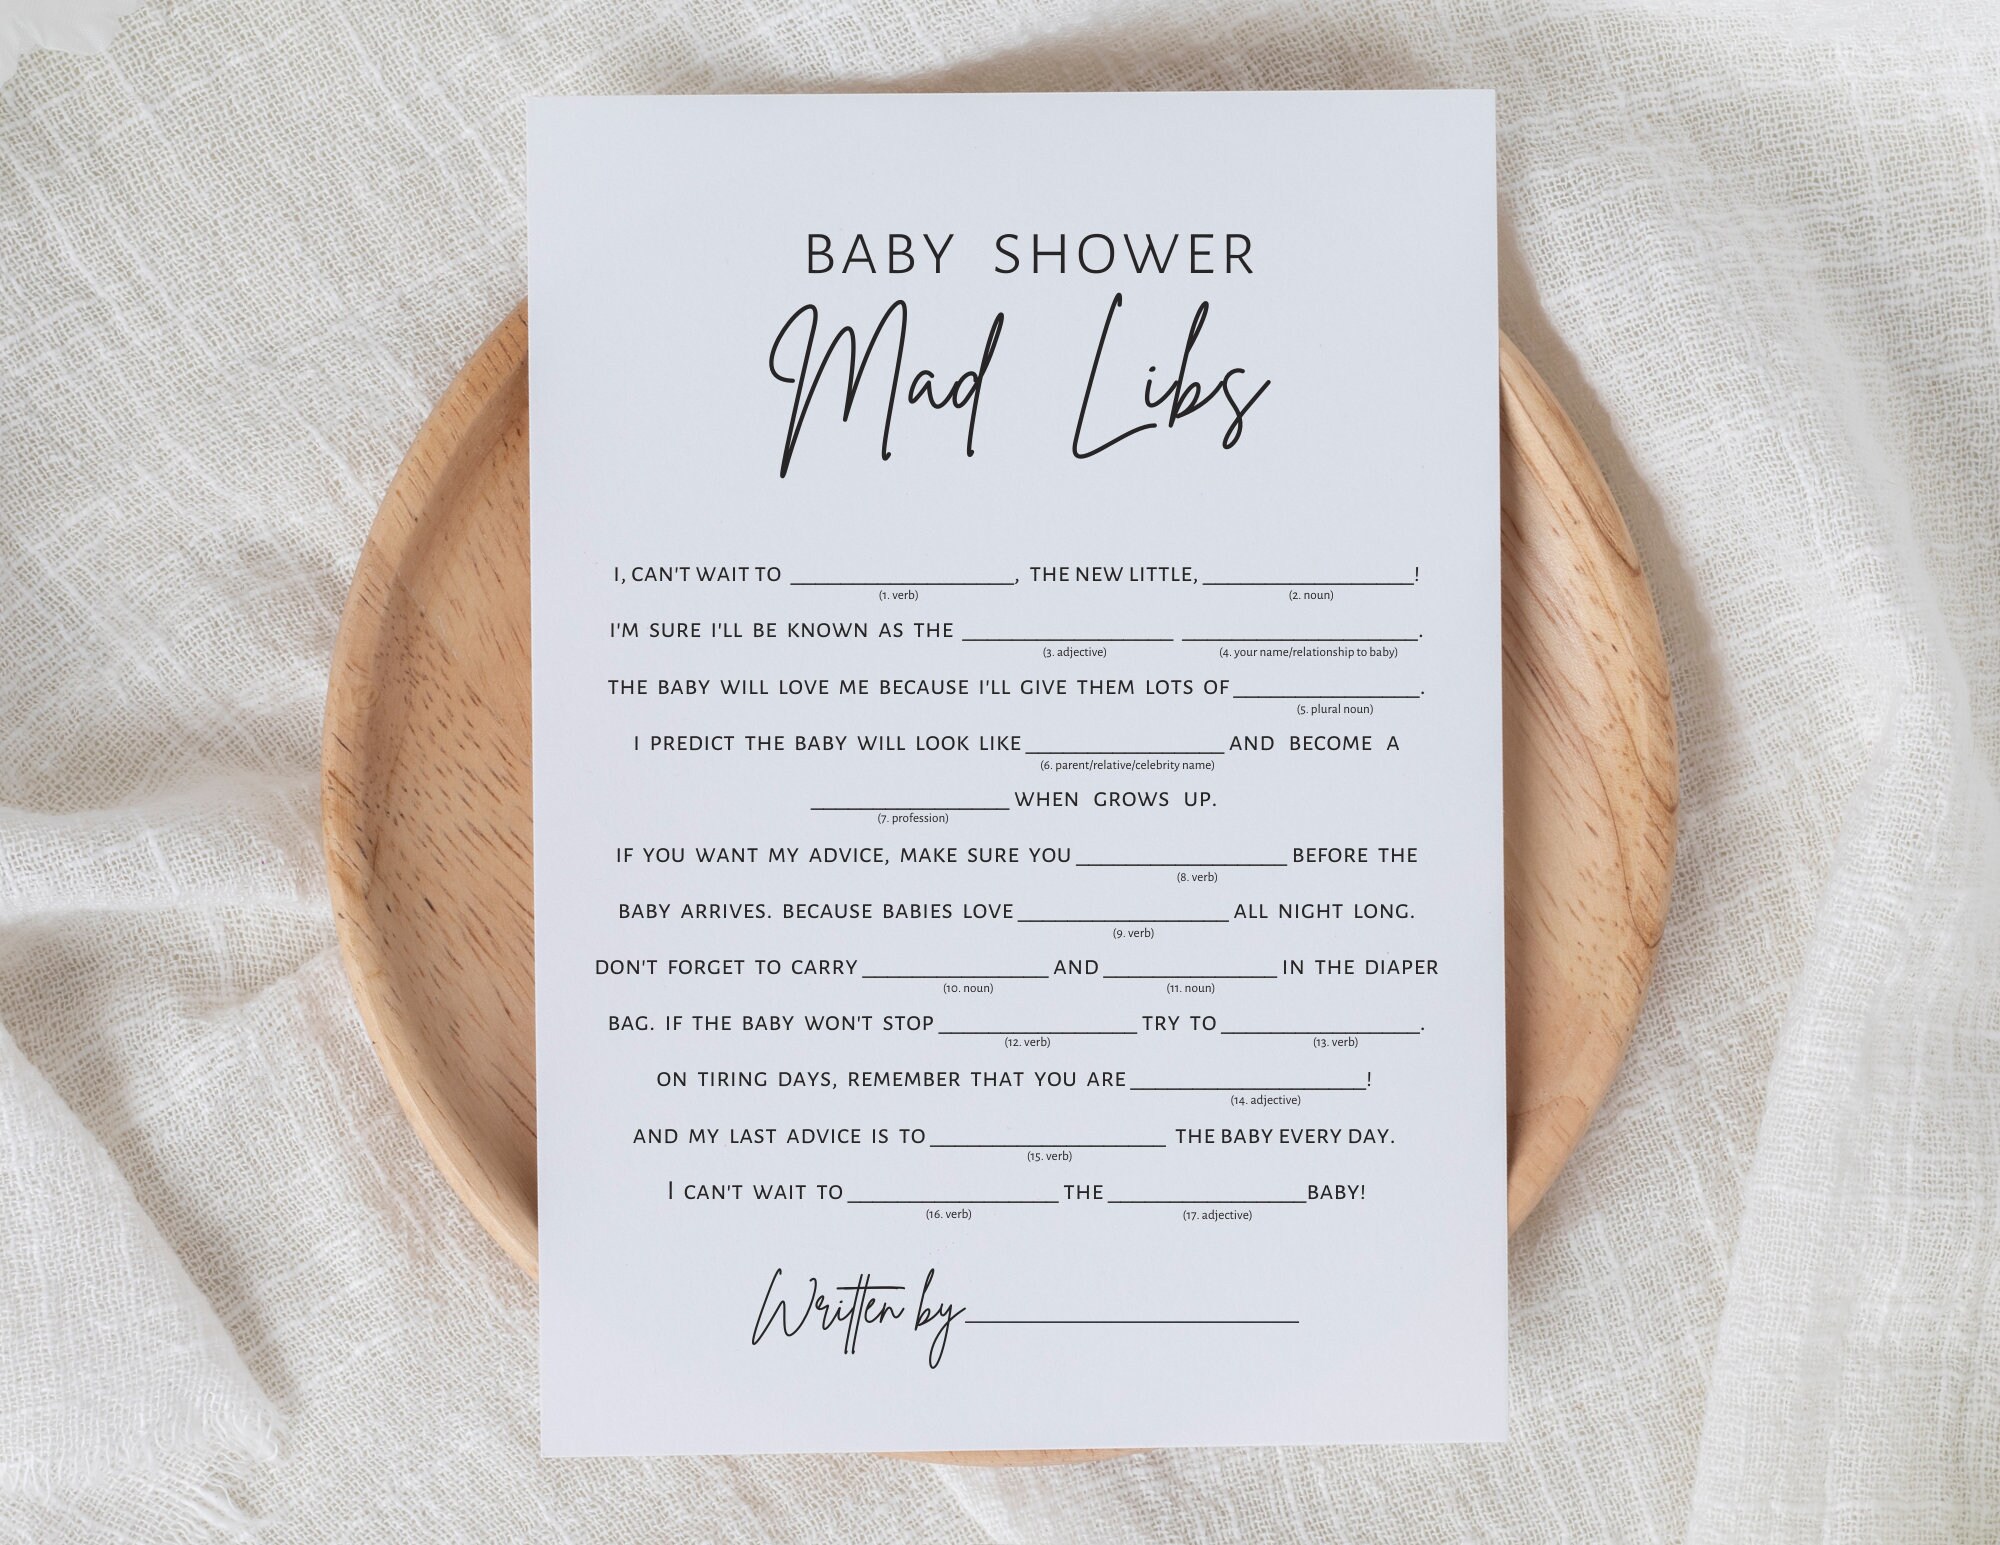 BABY SHOWER
Mad Libs
I, CAN'T WAIT TO __________, THE NEW LITTLE, __________!
(1. verb) (2. noun)
I'M SURE I'LL BE KNOWN AS THE __________ __________.
(3. adjective) (4. your name/relationship to baby)
THE BABY WILL LOVE ME BECAUSE I'LL GIVE THEM LOTS OF __________.
(5. plural noun)
I PREDICT THE BABY WILL LOOK LIKE __________ AND BECOME A
(6. parent/relative/celebrity name)
__________ WHEN GROWS UP.
(7. profession)
IF YOU WANT MY ADVICE, MAKE SURE YOU __________ BEFORE THE
(8. verb)
BABY ARRIVES. BECAUSE BABIES LOVE __________ ALL NIGHT LONG.
(9. verb)
DON'T FORGET TO CARRY __________ AND __________ IN THE DIAPER
(10. noun) (11. noun)
BAG. IF THE BABY WON'T STOP __________ TRY TO __________.
(12. verb) (13. verb)
ON TIRING DAYS, REMEMBER THAT YOU ARE __________!
(14. adjective)
AND MY LAST ADVICE IS TO __________ THE BABY EVERY DAY.
(15. verb)
I CAN'T WAIT TO __________ THE __________ BABY!
(16. verb) (17. adjective)
Written by __________